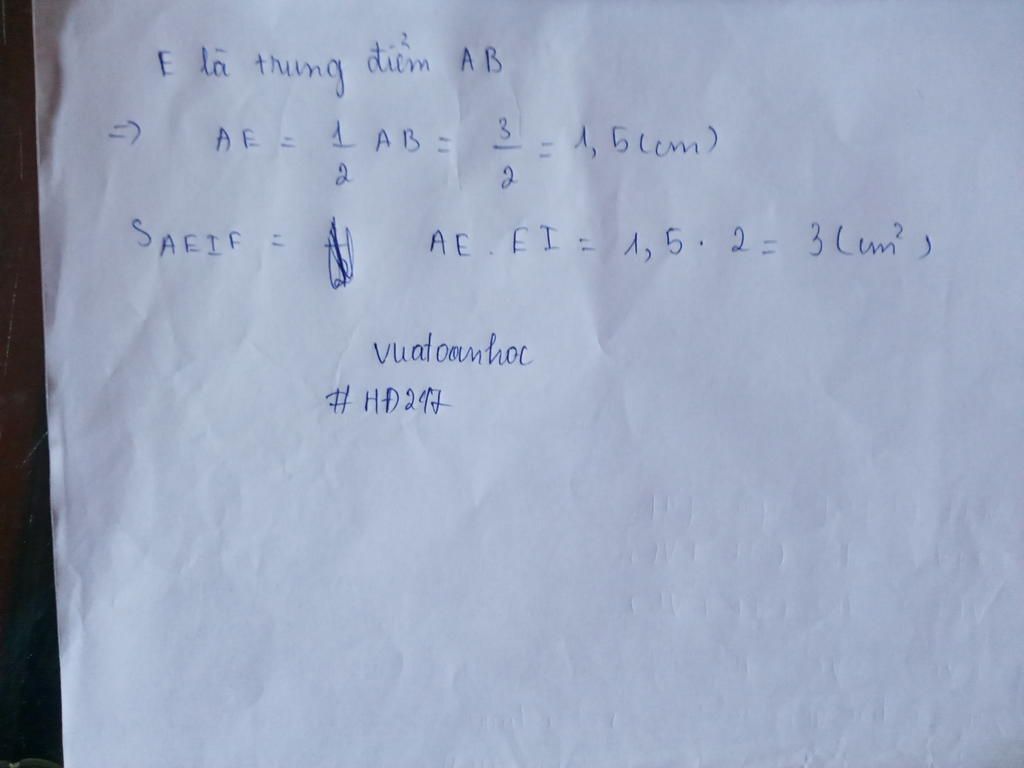 E là trung điểm AB
=> AE = 1/2 AB = 3/2 = 1,5(cm)
S AEIF = AE . EI = 1,5 . 2 = 3 (cm²)
vuatoanhoc
# HĐ247